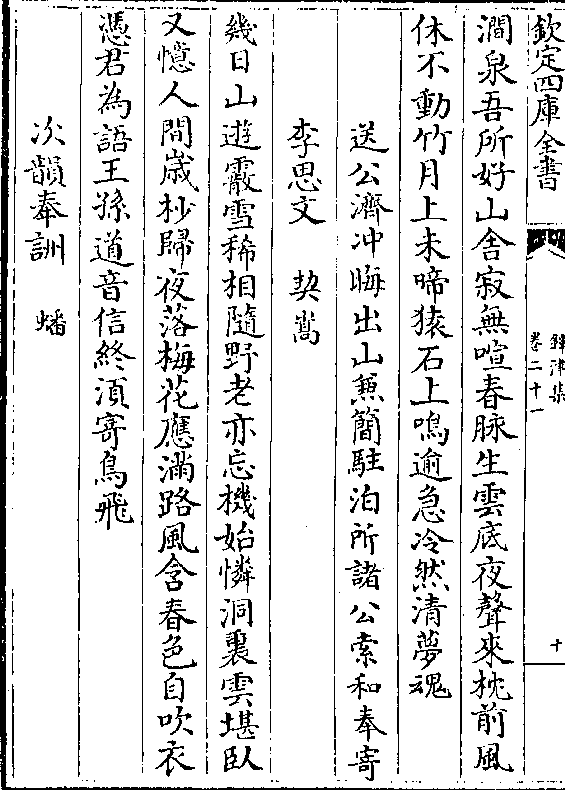 欽定四庫全書
鐔津集
卷二十一
十
澗泉吾所好山舍寂無喧春脉生雲底夜聲來枕前風
休不動竹月上未啼猿石上鳴逾急泠然清夢魂
送公濟冲晦出山兼簡駐泊所諸公索和奉寄
李思文 契嵩
幾日山遊霰雪稀相隨野老亦忘機始憐洞裏雲堪臥
又憶人間歲杪歸夜落梅花應滿路風含春色自吹衣
憑君為語王孫道音信終須寄鳥飛
次韻奉詶 蟠